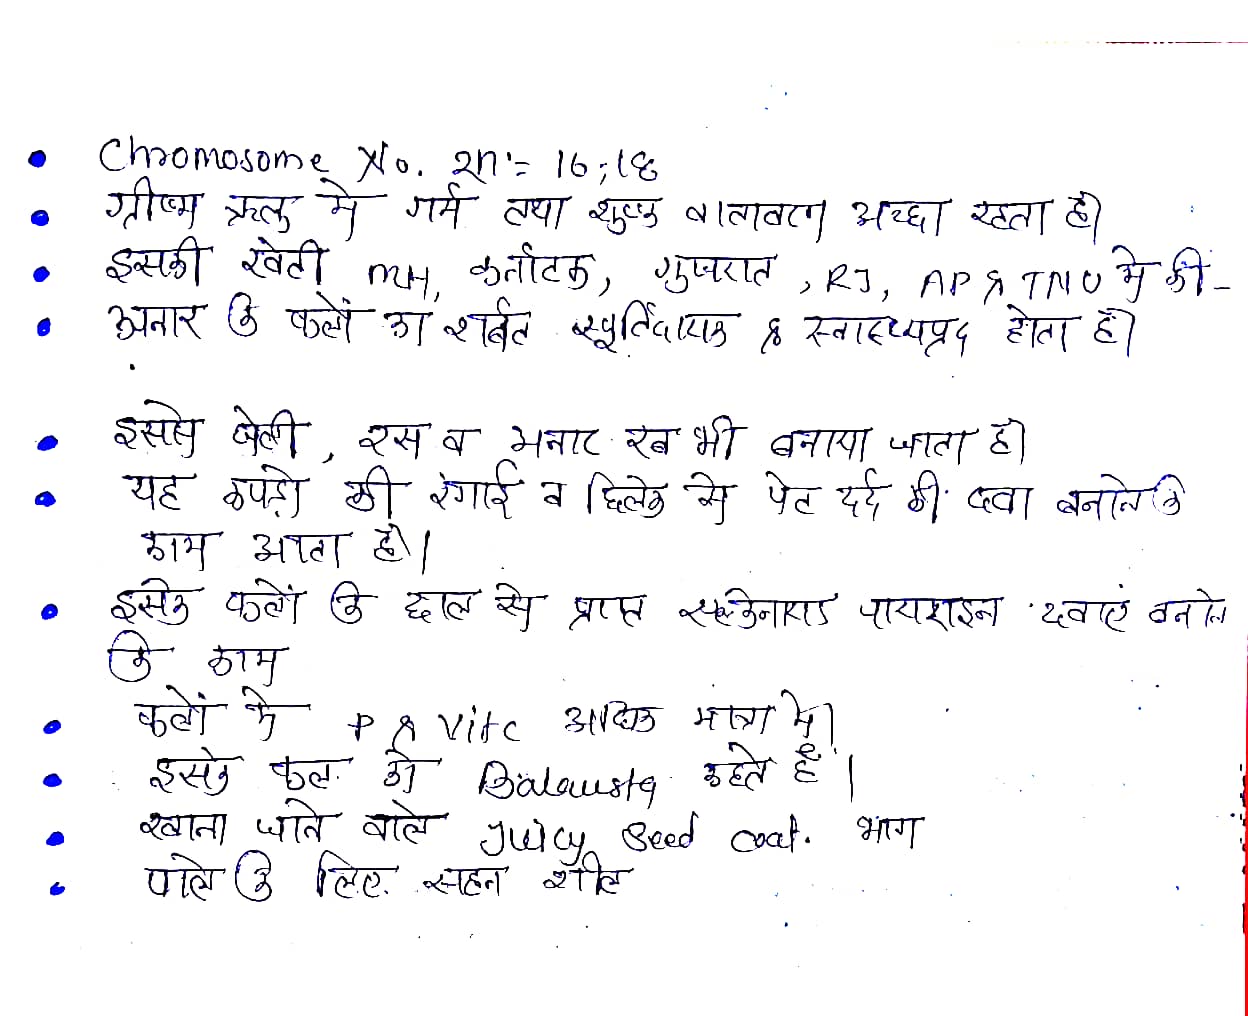 Chromosome No. 2n = 16,18
ग्रीष्म ऋतु में गर्म तथा शुष्क वातावरण अच्छा रहता है।
इसकी खेती MH, कर्नाटक, गुजरात, RJ, AP & TNU में की -
अनार के फलों का शर्बत स्फूर्तिदायक & स्वास्थ्यप्रद होता है।
इससे जेली, रस व अनार रब भी बनाया जाता है।
यह कपड़ो की रंगाई व छिलके से पेट दर्द की दवा बनाने के
काम आता है।
इसके फलों के छाल से प्राप्त पायराइन दवाएं बनाने
के काम
फलों में P & Vit C अधिक मात्रा में।
इसके फल को Balausta कहते हैं।
खाना जाने वाले Juicy Seed coat. भाग
पाले के लिए सहन शील